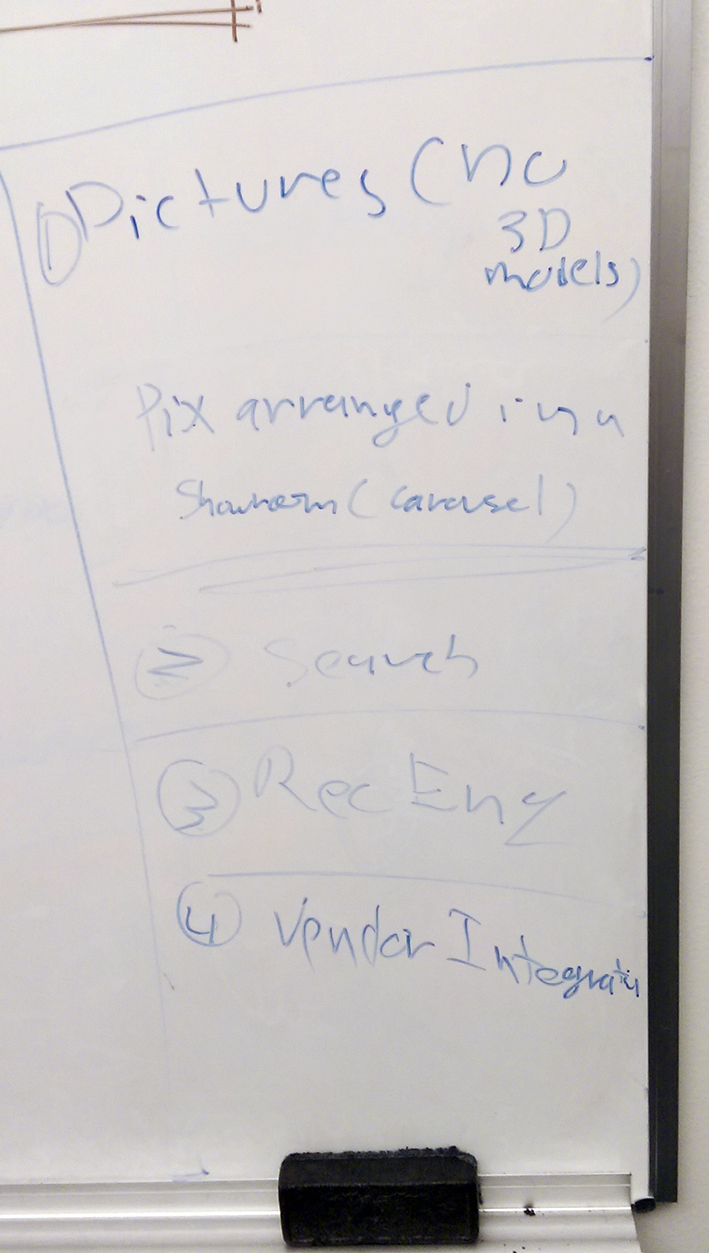 ① Pictures (no
3D
models)
Pix arranged in a
Showroom (carousel)
② Search
③ Rec Eng
④ Vendor Integrati